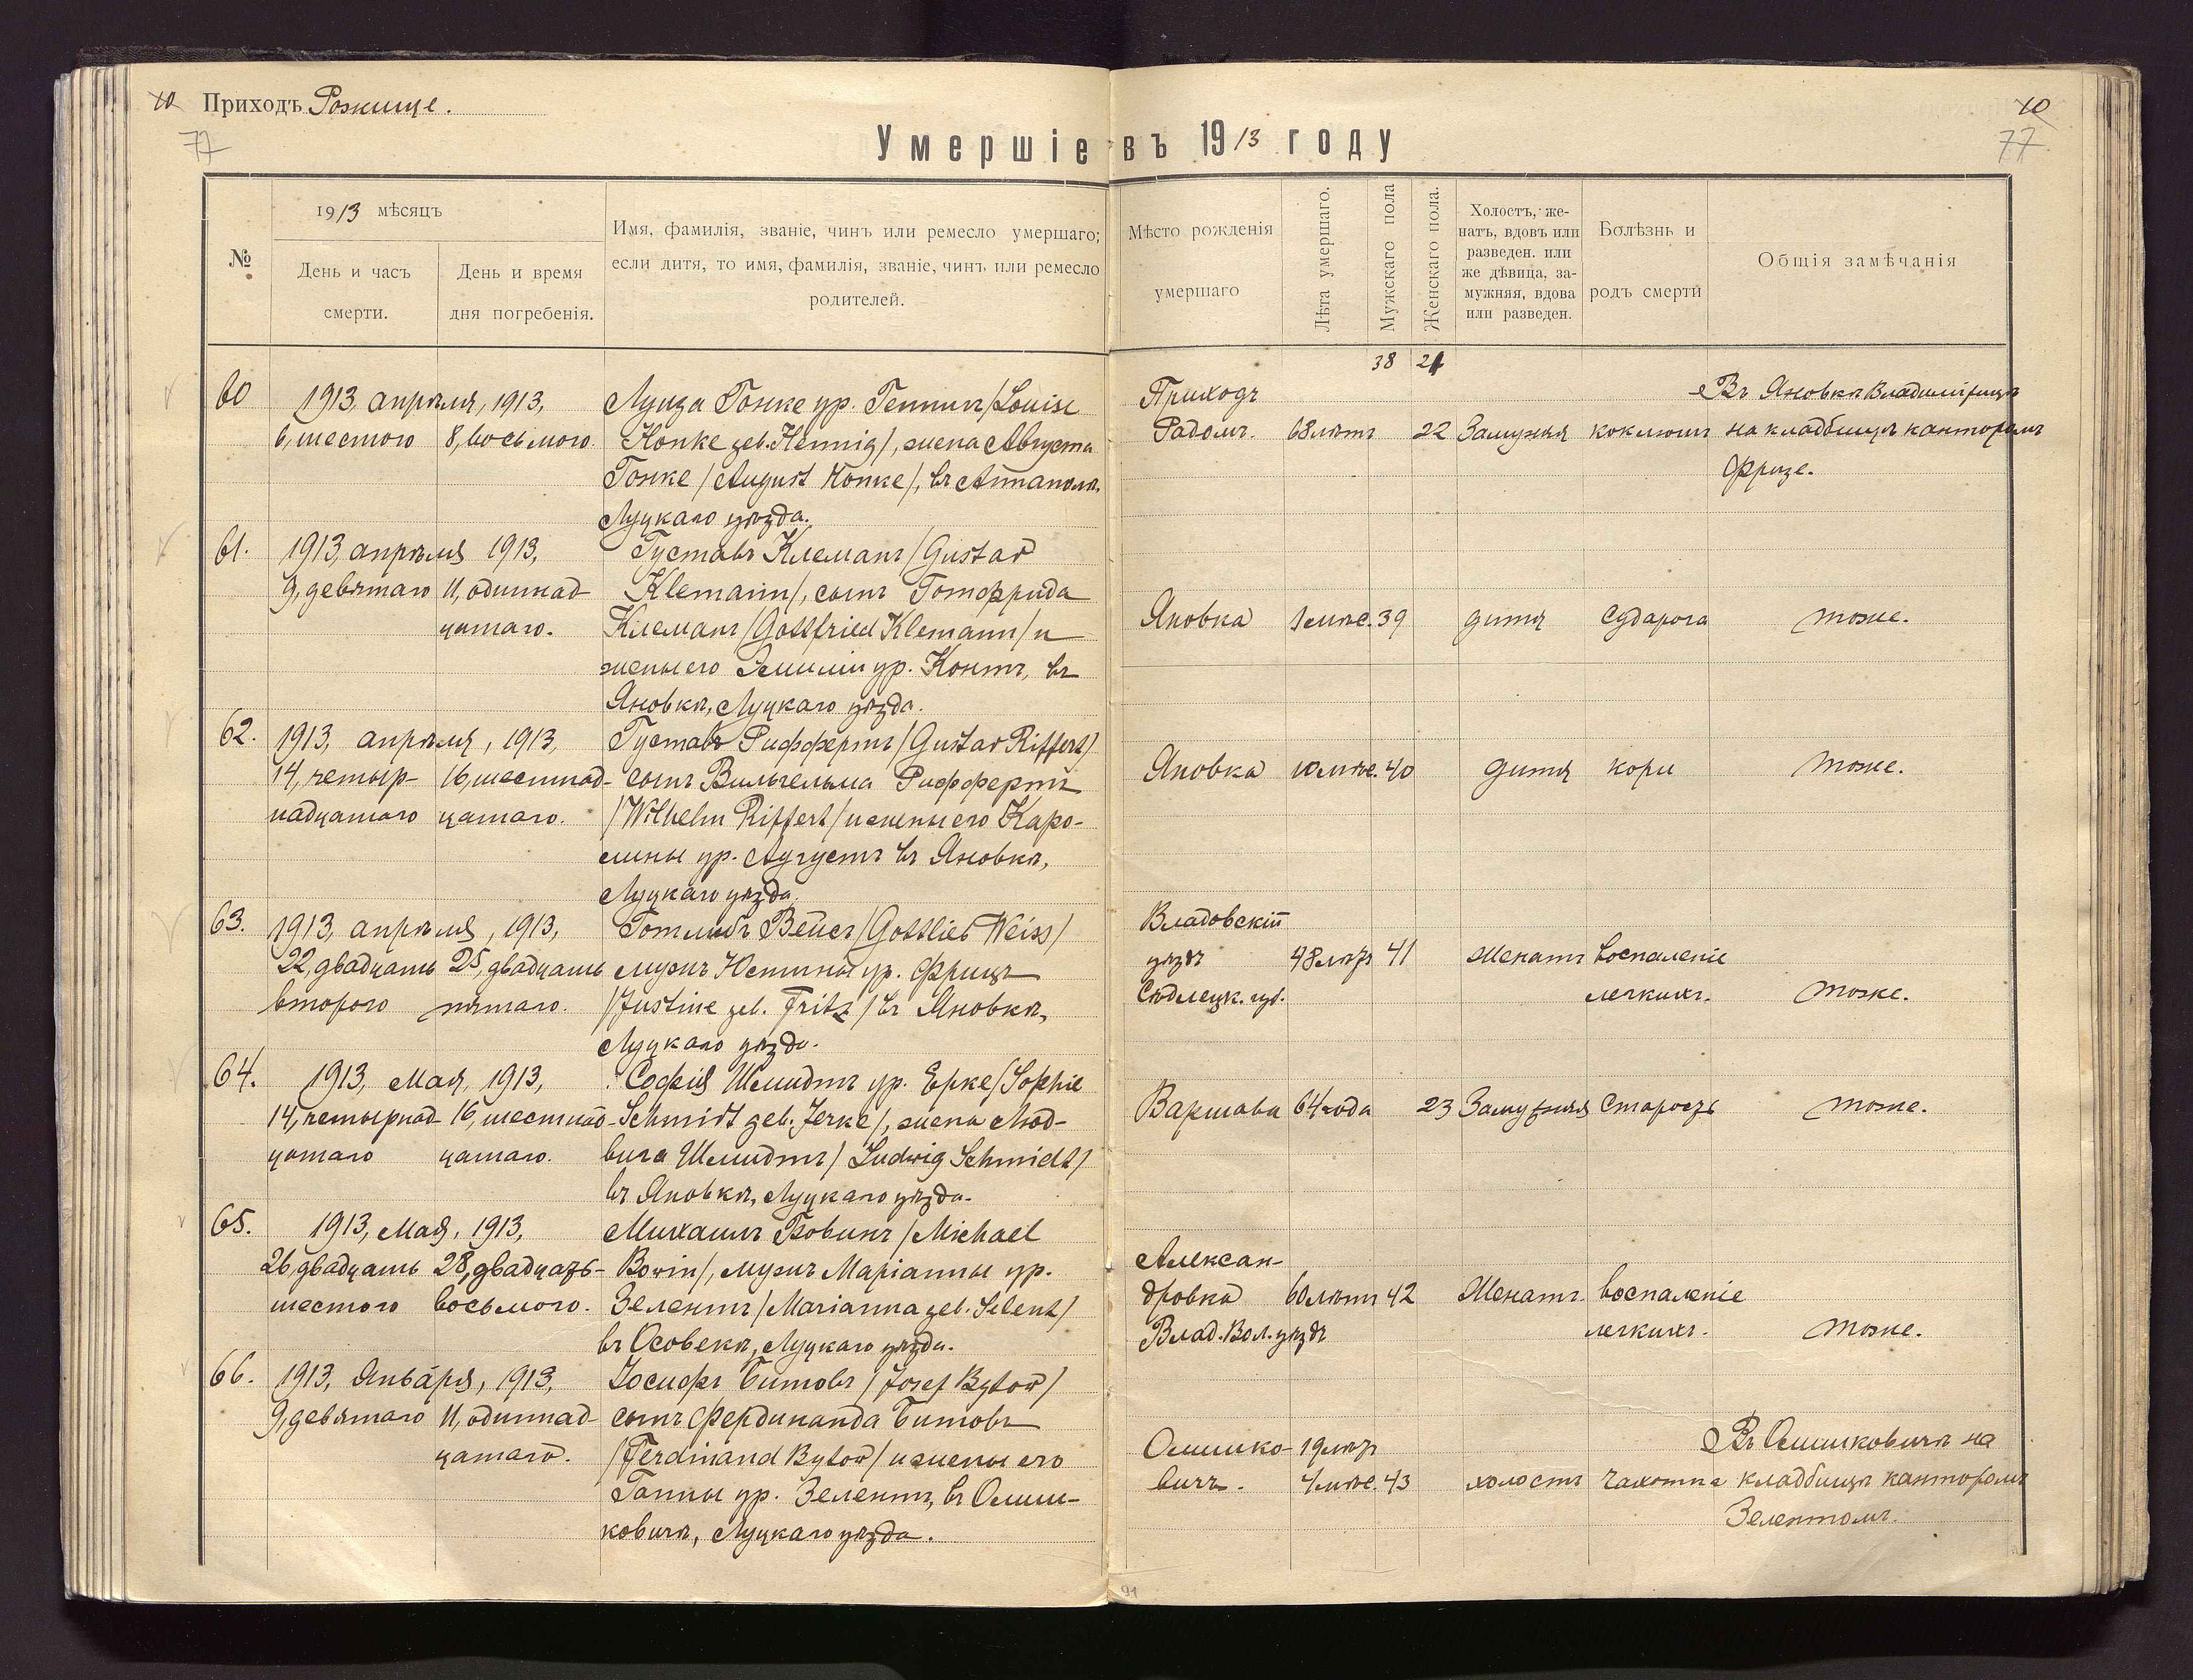 10 Приходъ Рожище.
77
10
77
Умершіе въ 1913 году
№
1913 мѣсяцъ
День и часъ
смерти.
День и время
дня погребенія.
Имя, фамилія, званіе, чинъ или ремесло умершаго;
если дитя, то имя, фамилія, званіе, чинъ или ремесло
родителей.
Мѣсто рожденія
умершаго
Лѣта умершаго.
Мужскаго пола
Женскаго пола.
Холостъ, же-
натъ, вдовъ или
разведен. или
же дѣвица, за-
мужняя, вдова
или разведен.
Болѣзнь и
родъ смерти
Общія замѣчанія
38 21
60
1913, апрѣля, 1913,
6, шестого 8, восьмого.
Луиза Гонке ур. Геннигъ /Louise
Honke geb. Hennig/, жена Августа
Гонке /August Honke/, въ Аннаполѣ,
Луцкаго уѣзда.
Приходъ
Радомъ. 68 лѣтъ 22 Замужняя коклюшъ
Въ Яновкѣ Владимірицкой
на кладбищѣ канторомъ
Фризе.
61.
1913, апрѣля 1913,
9, девятаго 11, одиннад-
цатаго.
Густавъ Клеманъ /Gustav
Klemann/, сынъ Готфрида
Клеманъ /Gottfried Klemann/ и
жены его Эмиліи ур. Контъ, въ
Яновкѣ, Луцкаго уѣзда.
Яновка 1 мѣс. 39 дитя Судорога тоже.
62.
1913, апрѣля, 1913,
14, четыр- 16, шестнад-
надцатаго цатаго.
Густавъ Риффертъ /Gustav Riffert/
сынъ Вильгельма Риффертъ
/Wilhelm Riffert/ и жены его Каро-
лины ур. Аугустъ въ Яновкѣ,
Луцкаго уѣзда.
Яновка 10 мѣс. 40 дитя кори тоже.
63.
1913, апрѣля, 1913,
22, двадцать 25, двадцать
второго пятаго.
Готлибъ Вейсъ /Gottlieb Weiss/
мужъ Юстины ур. Фрицъ
/Justine geb. Fritz/ въ Яновкѣ,
Луцкаго уѣзда.
Владовскій
уѣздъ 48 лѣтъ 41 Женатъ воспаленіе
Сѣдлецк. губ. легкихъ. тоже.
64.
1913, Мая, 1913,
14, четырнад- 16, шестнад-
цатаго цатаго.
Софія Шмидтъ ур. Ерке /Sophie
Schmidt geb. Jerke/, жена Люд-
вига Шмидтъ /Ludwig Schmidt/
въ Яновкѣ, Луцкаго уѣзда.
Варшава 64 года 23 Замужняя Старость тоже.
65.
1913, Мая, 1913,
26, двадцать 28, двадцать-
шестого восьмого.
Михаилъ Бовинъ /Michael
Bowin/, мужъ Маріанны ур.
Зелентъ /Marianna geb. Selent/
въ Осовекѣ, Луцкаго уѣзда.
Алексан-
дровка 60 лѣтъ 42 Женатъ. воспаленіе
Влад. Вол. уѣздъ легкихъ. тоже.
66.
1913, Января, 1913,
9, девятаго 11, одиннад-
цатаго.
Іосифъ Битовъ /Josef Bytow/
сынъ Фердинанда Битовъ
/Ferdinand Bytow/ и жены его
Ганны ур. Зелентъ, въ Олши-
ковичѣ, Луцкаго уѣзда.
19 лѣтъ
4 мѣс. 43 холостъ чахотка
на
кладбищѣ канторомъ
Зелентомъ.
91